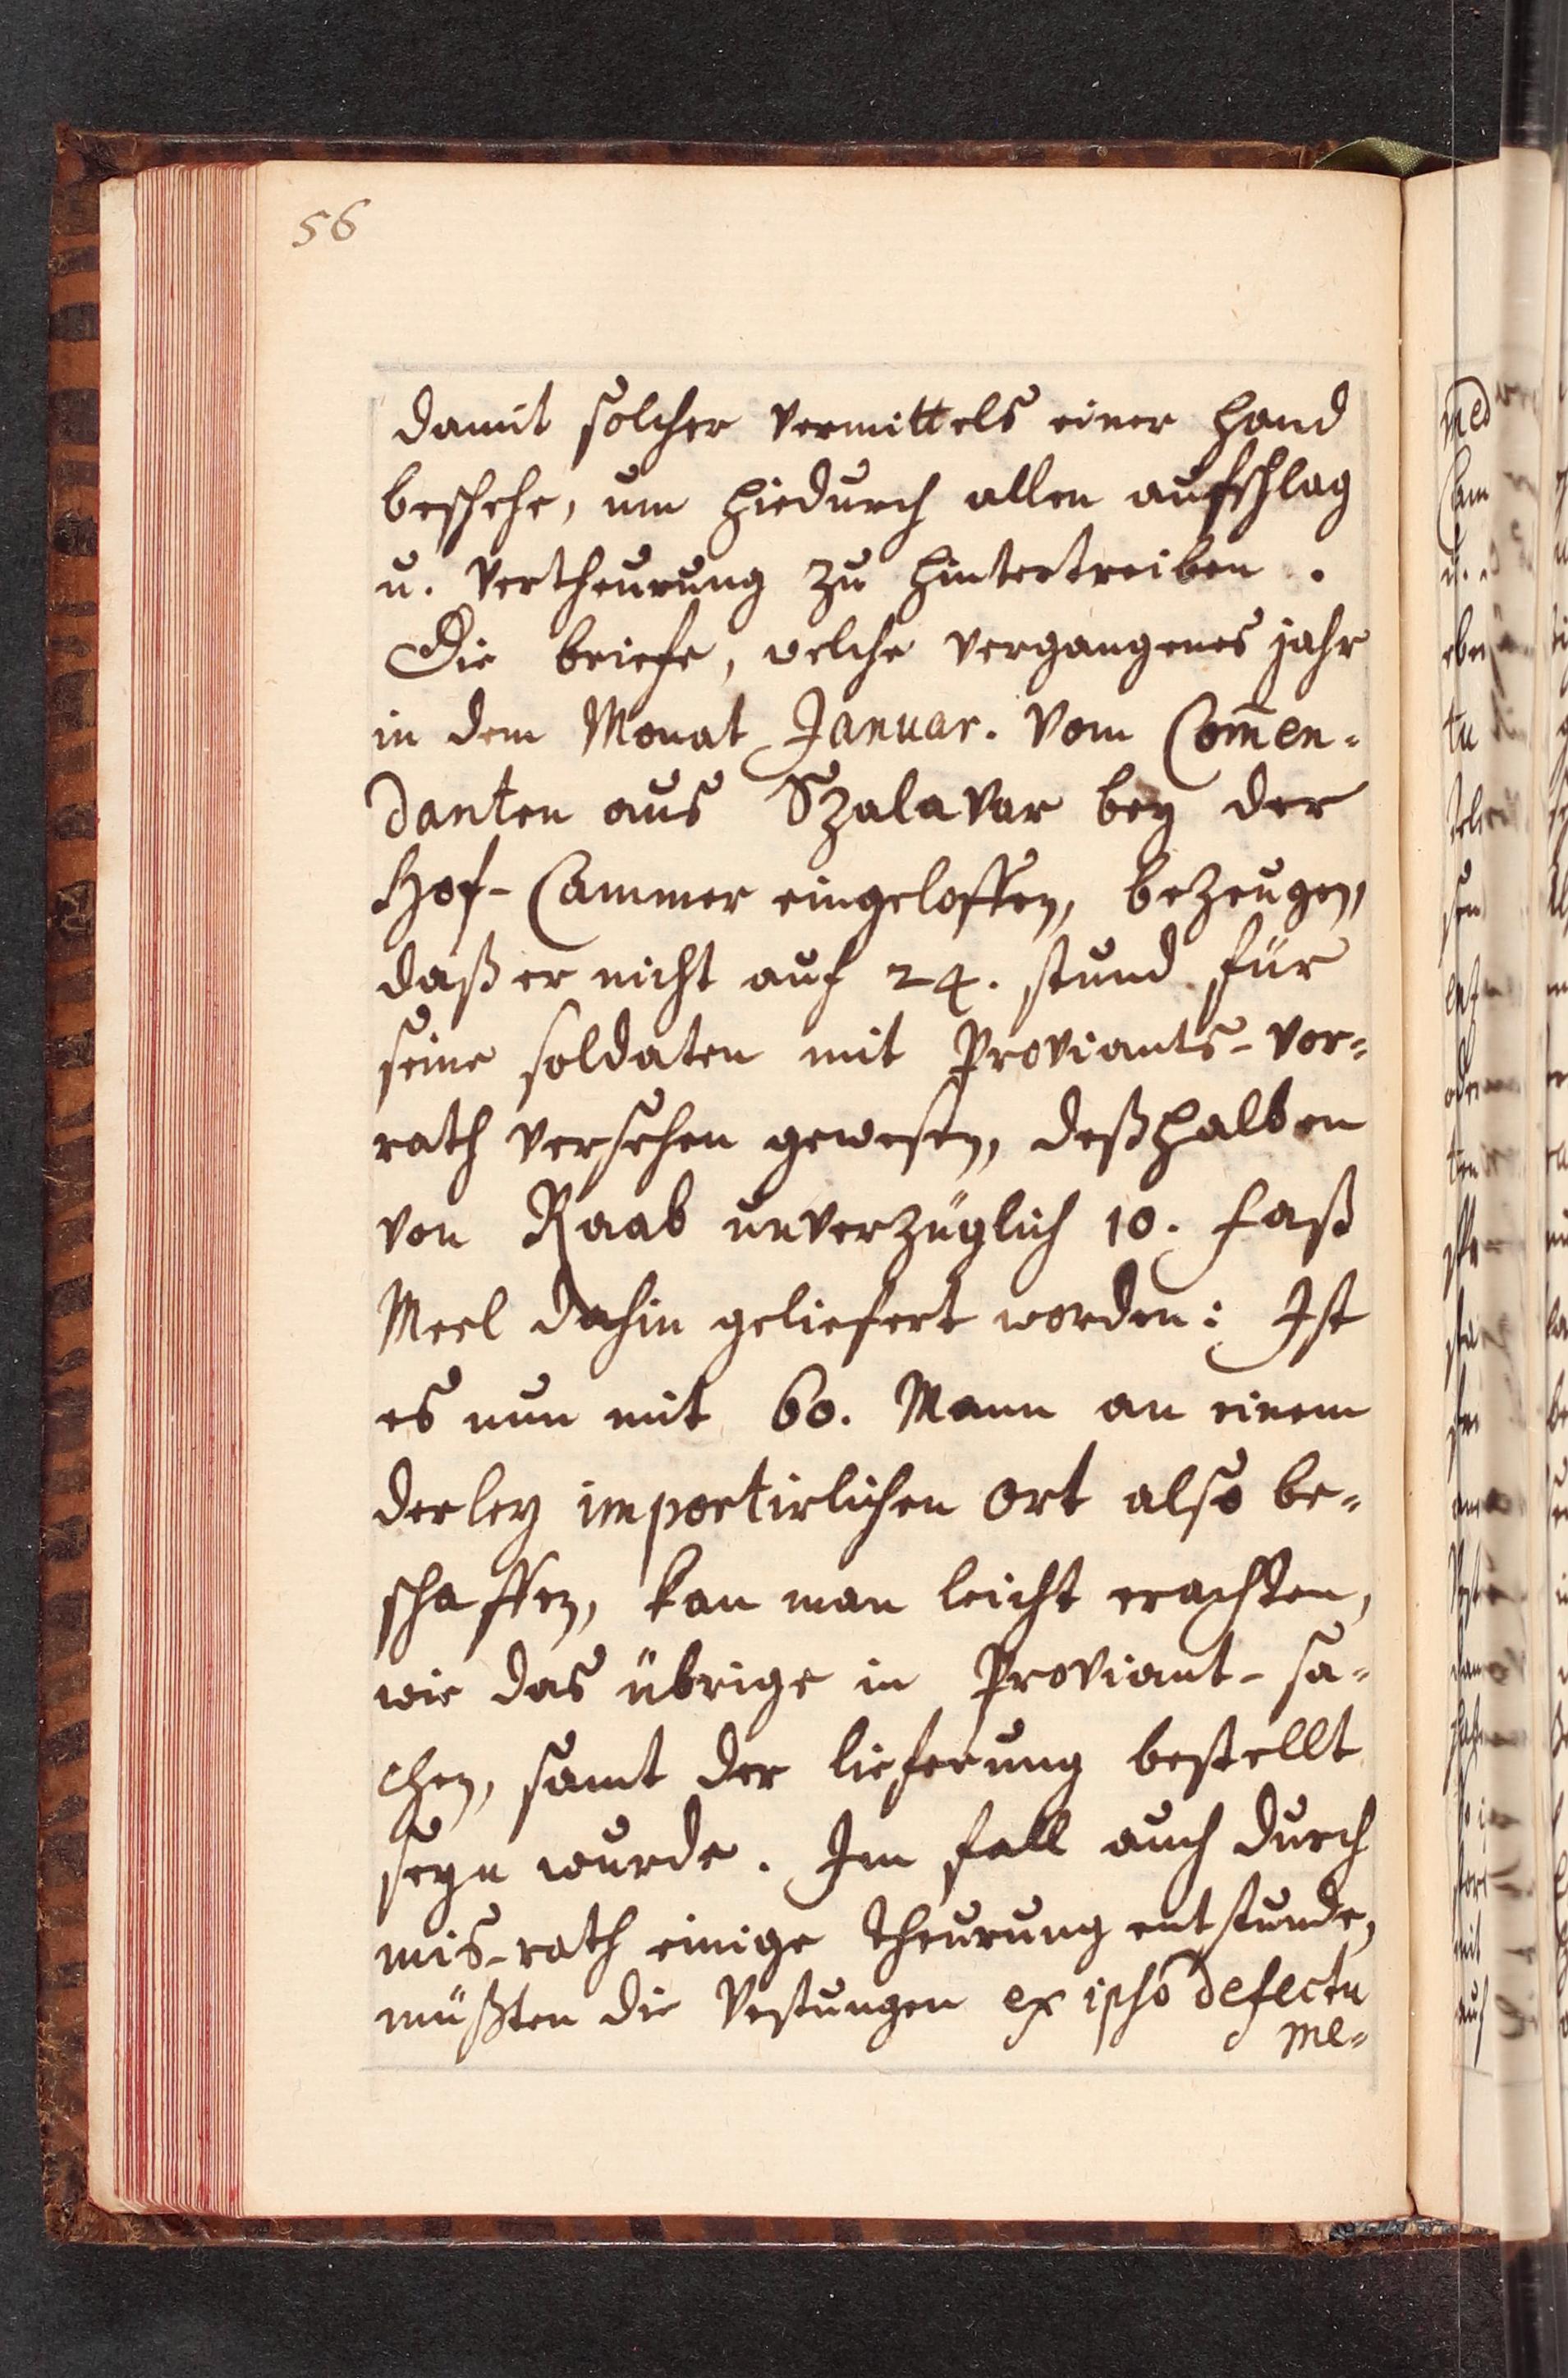 56
damit solcher vermittels einer hand
beschehe, um hiedurch allen aufschlag
u. vertheurung zu hintertreiben.
Die briefe, welche vergangenes jahr
in dem Monat Januar. vom Com̄en-
danten aus Szalavar bey der
Hof-Cammer eingeloffen, bezeugen,
daß er nicht auf 24. stund für
seine soldaten mit Proviants-vor-
rath versehen gewesen, deßhalben
von Raab unverzüglich 10. faß
Meel dahin geliefert worden: Ist
es nun mit 60. Mann an einem
derley importirlichen ort also be-
schaffen, kan man leicht erachten,
wie das übrige in Proviant-sa-
chen, samt der lieferung bestellt
seyn wurde. Im fall auch durch
mis-rath einige theurung entstunde,
müßten die Vestungen ex ipso defectu
me-